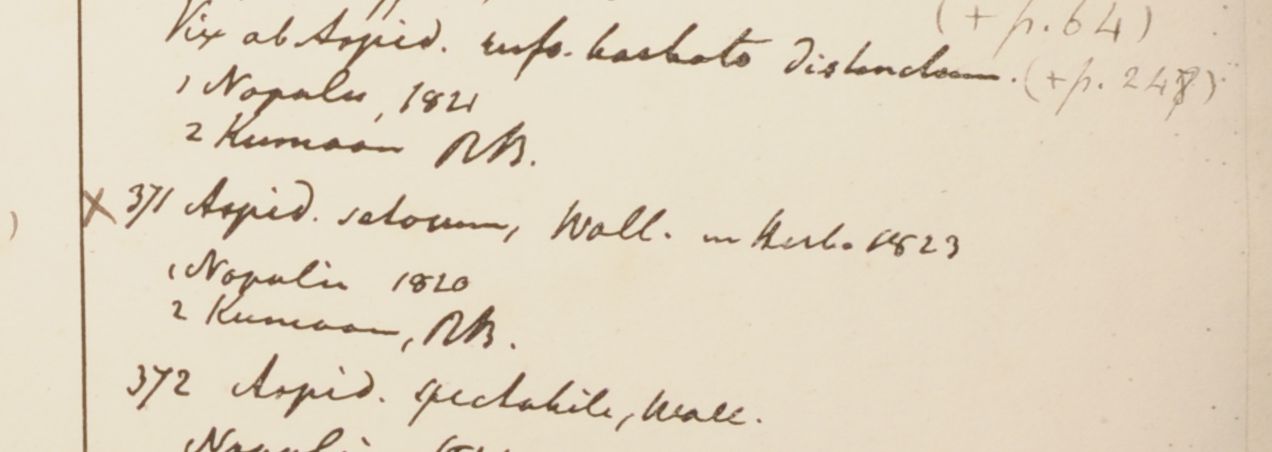 (+ p. 64)
Vix ab Aspid. rufo-barbato distinctum. (+ p. 248)
1 Napalia, 1821
2 Kumaon RB.
X 371 Aspid. setosum, Wall. in Herb. 1823
1 Napalia 1820
2 Kumaon, RB.
372 Aspid. spectabile, Wall.
Napalia